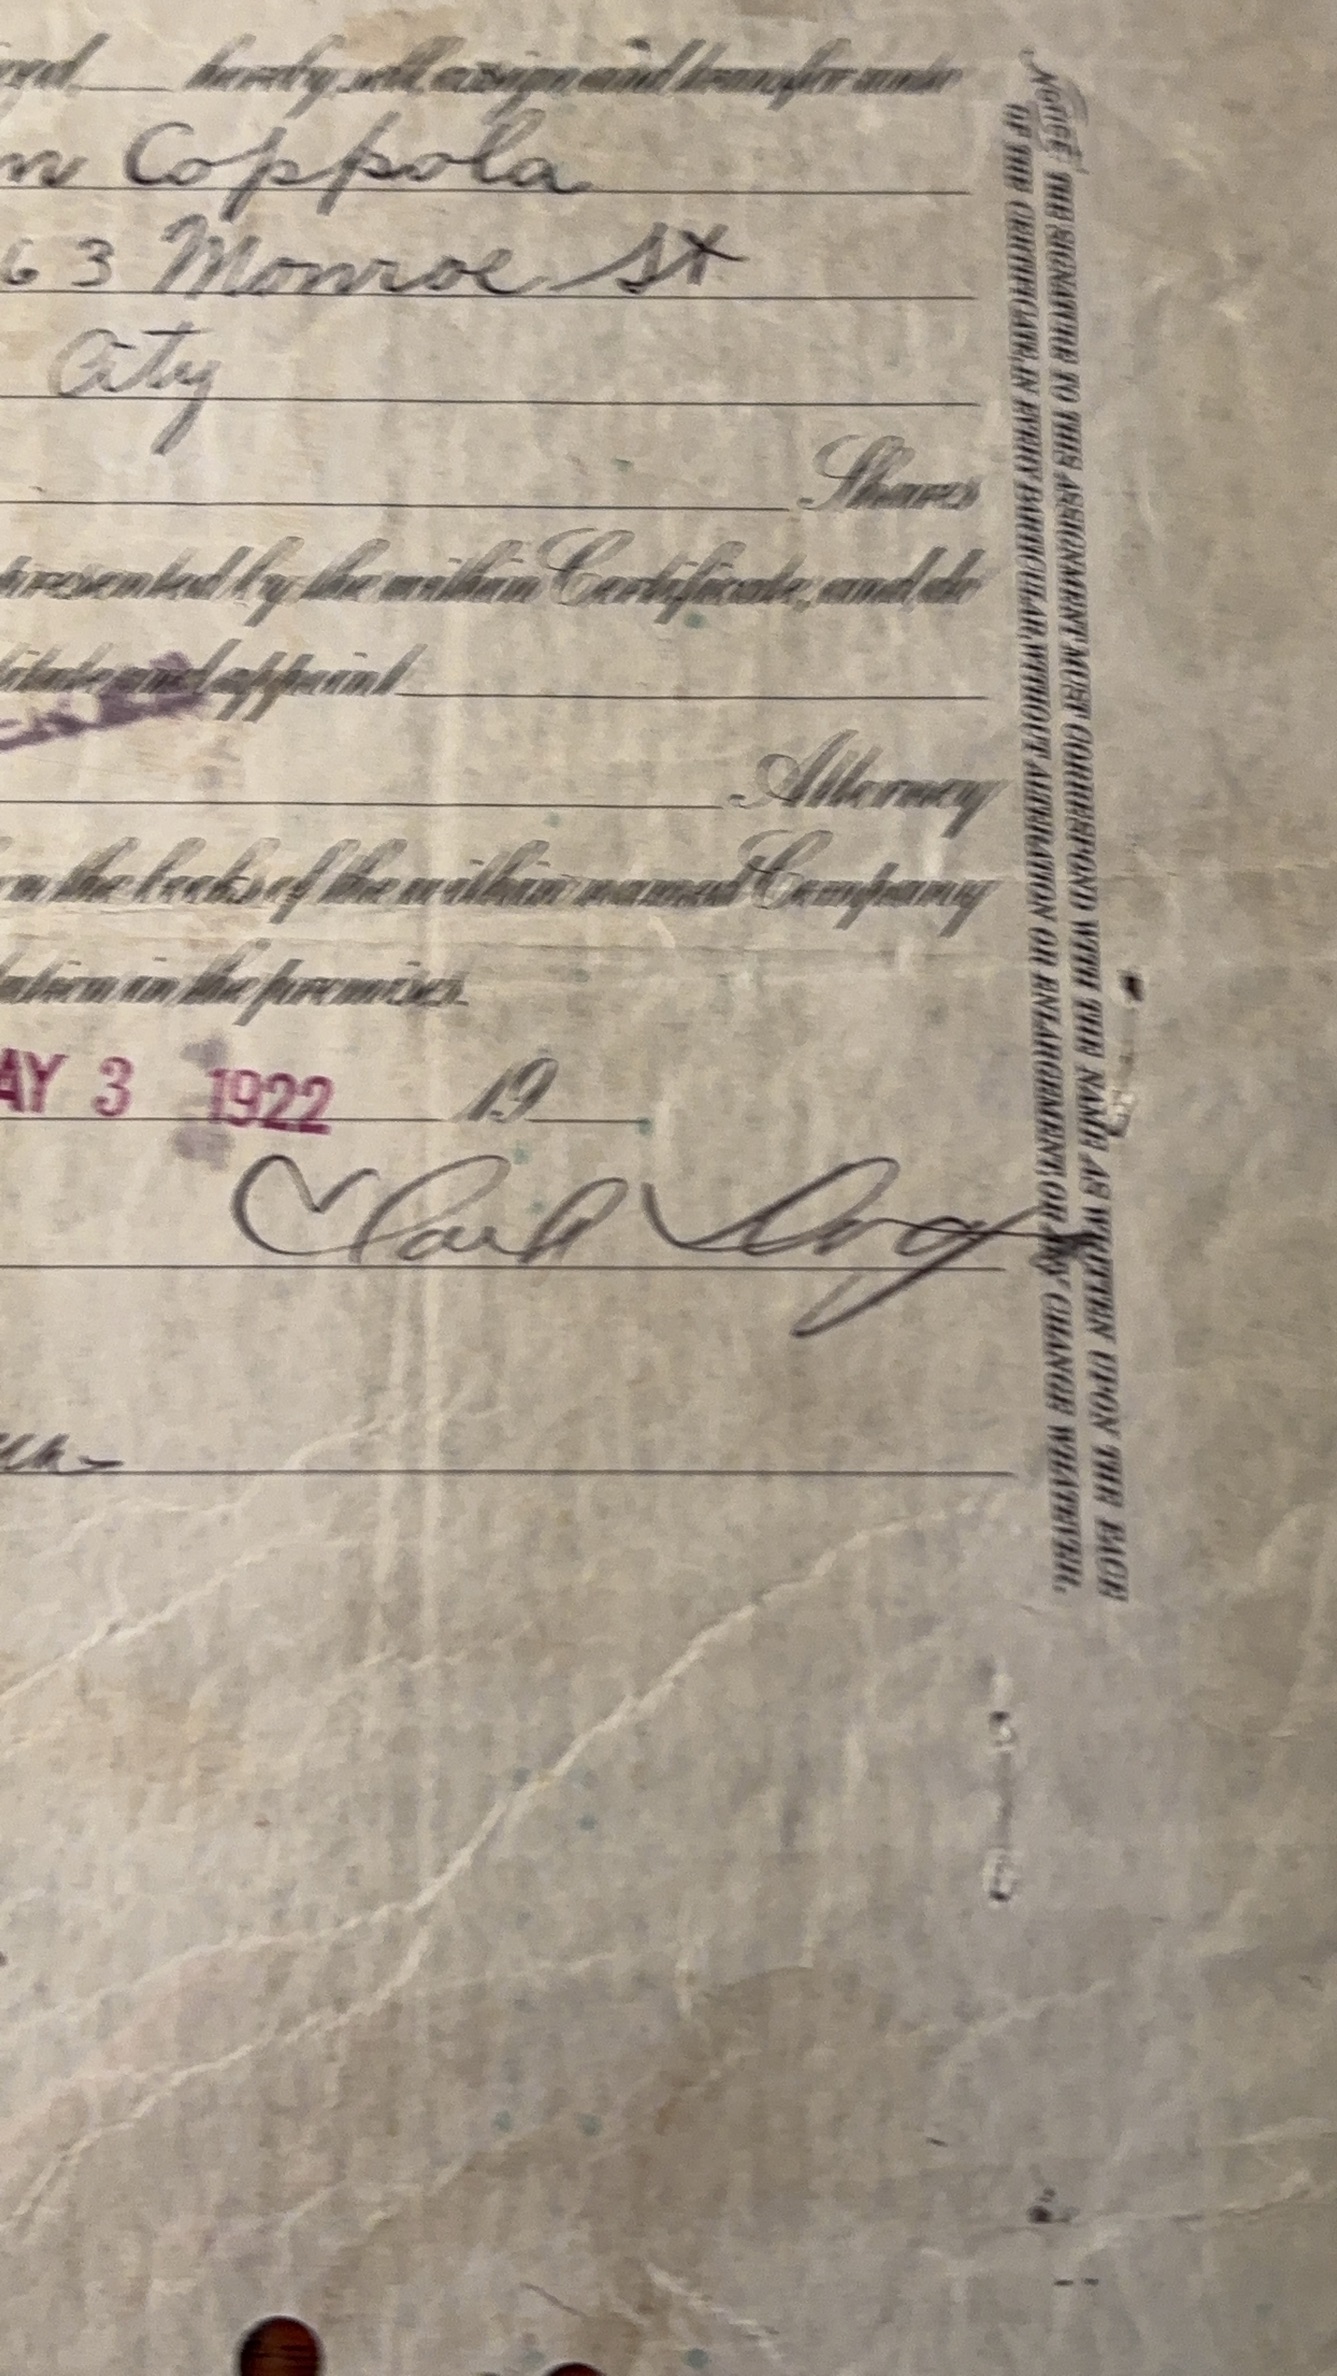 hereby, sell, assign and transfer unto
Coppola
63 Monroe St
City
Shares
presented by the within Certificate, and do
and appoint
Attorney
on the books of the within named Company
in the premises.
AY 3 1922 19
Clark
NOTICE: THE SIGNATURE TO THIS ASSIGNMENT MUST CORRESPOND WITH THE NAME AS WRITTEN UPON THE FACE
OF THE CERTIFICATE, IN EVERY PARTICULAR, WITHOUT ALTERATION OR ENLARGEMENT, OR ANY CHANGE WHATEVER.